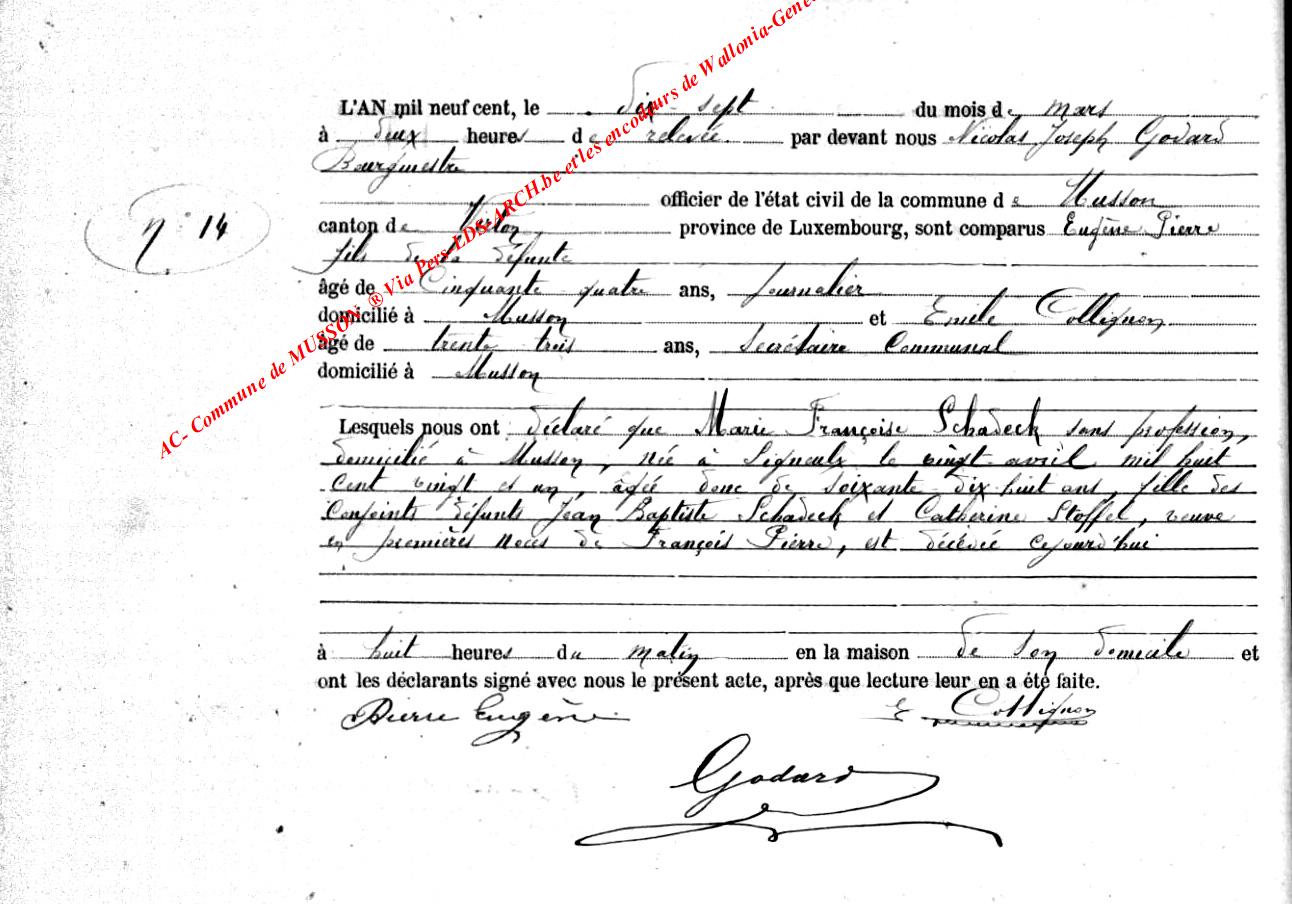 L'AN mil neuf cent, le dix-sept du mois de mars
à deux heures de relevée par devant nous Nicolas Joseph Godard
Bourgmestre
officier de l'état civil de la commune de Musson
canton de Virton, province de Luxembourg, sont comparus Eugène Pierre
fils de la défunte
âgé de Cinquante quatre ans, journalier
domicilié à Musson et Emile Collignon
âgé de trente trois ans, Secrétaire Communal
domicilié à Musson
n° 14
Lesquels nous ont déclaré que Marie Françoise Schadeck sans profession,
domicilié à Musson, née à Signeulx le vingt avril mil huit
cent vingt et un, âgée donc de soixante dix huit ans, fille des
conjoints défunts Jean Baptiste Schadeck et Catherine Stoffel, veuve
en premières noces de François Pierre, est décédée cejourd'hui
à huit heures du matin en la maison de son domicile et
ont les déclarants signé avec nous le présent acte, après que lecture leur en a été faite.
Pierre Eugène E Collignon
Godard
AC- Commune de MUSSON ® Via Pers-LDS-ARCH.be et les encodeurs de Wallonia-Gene